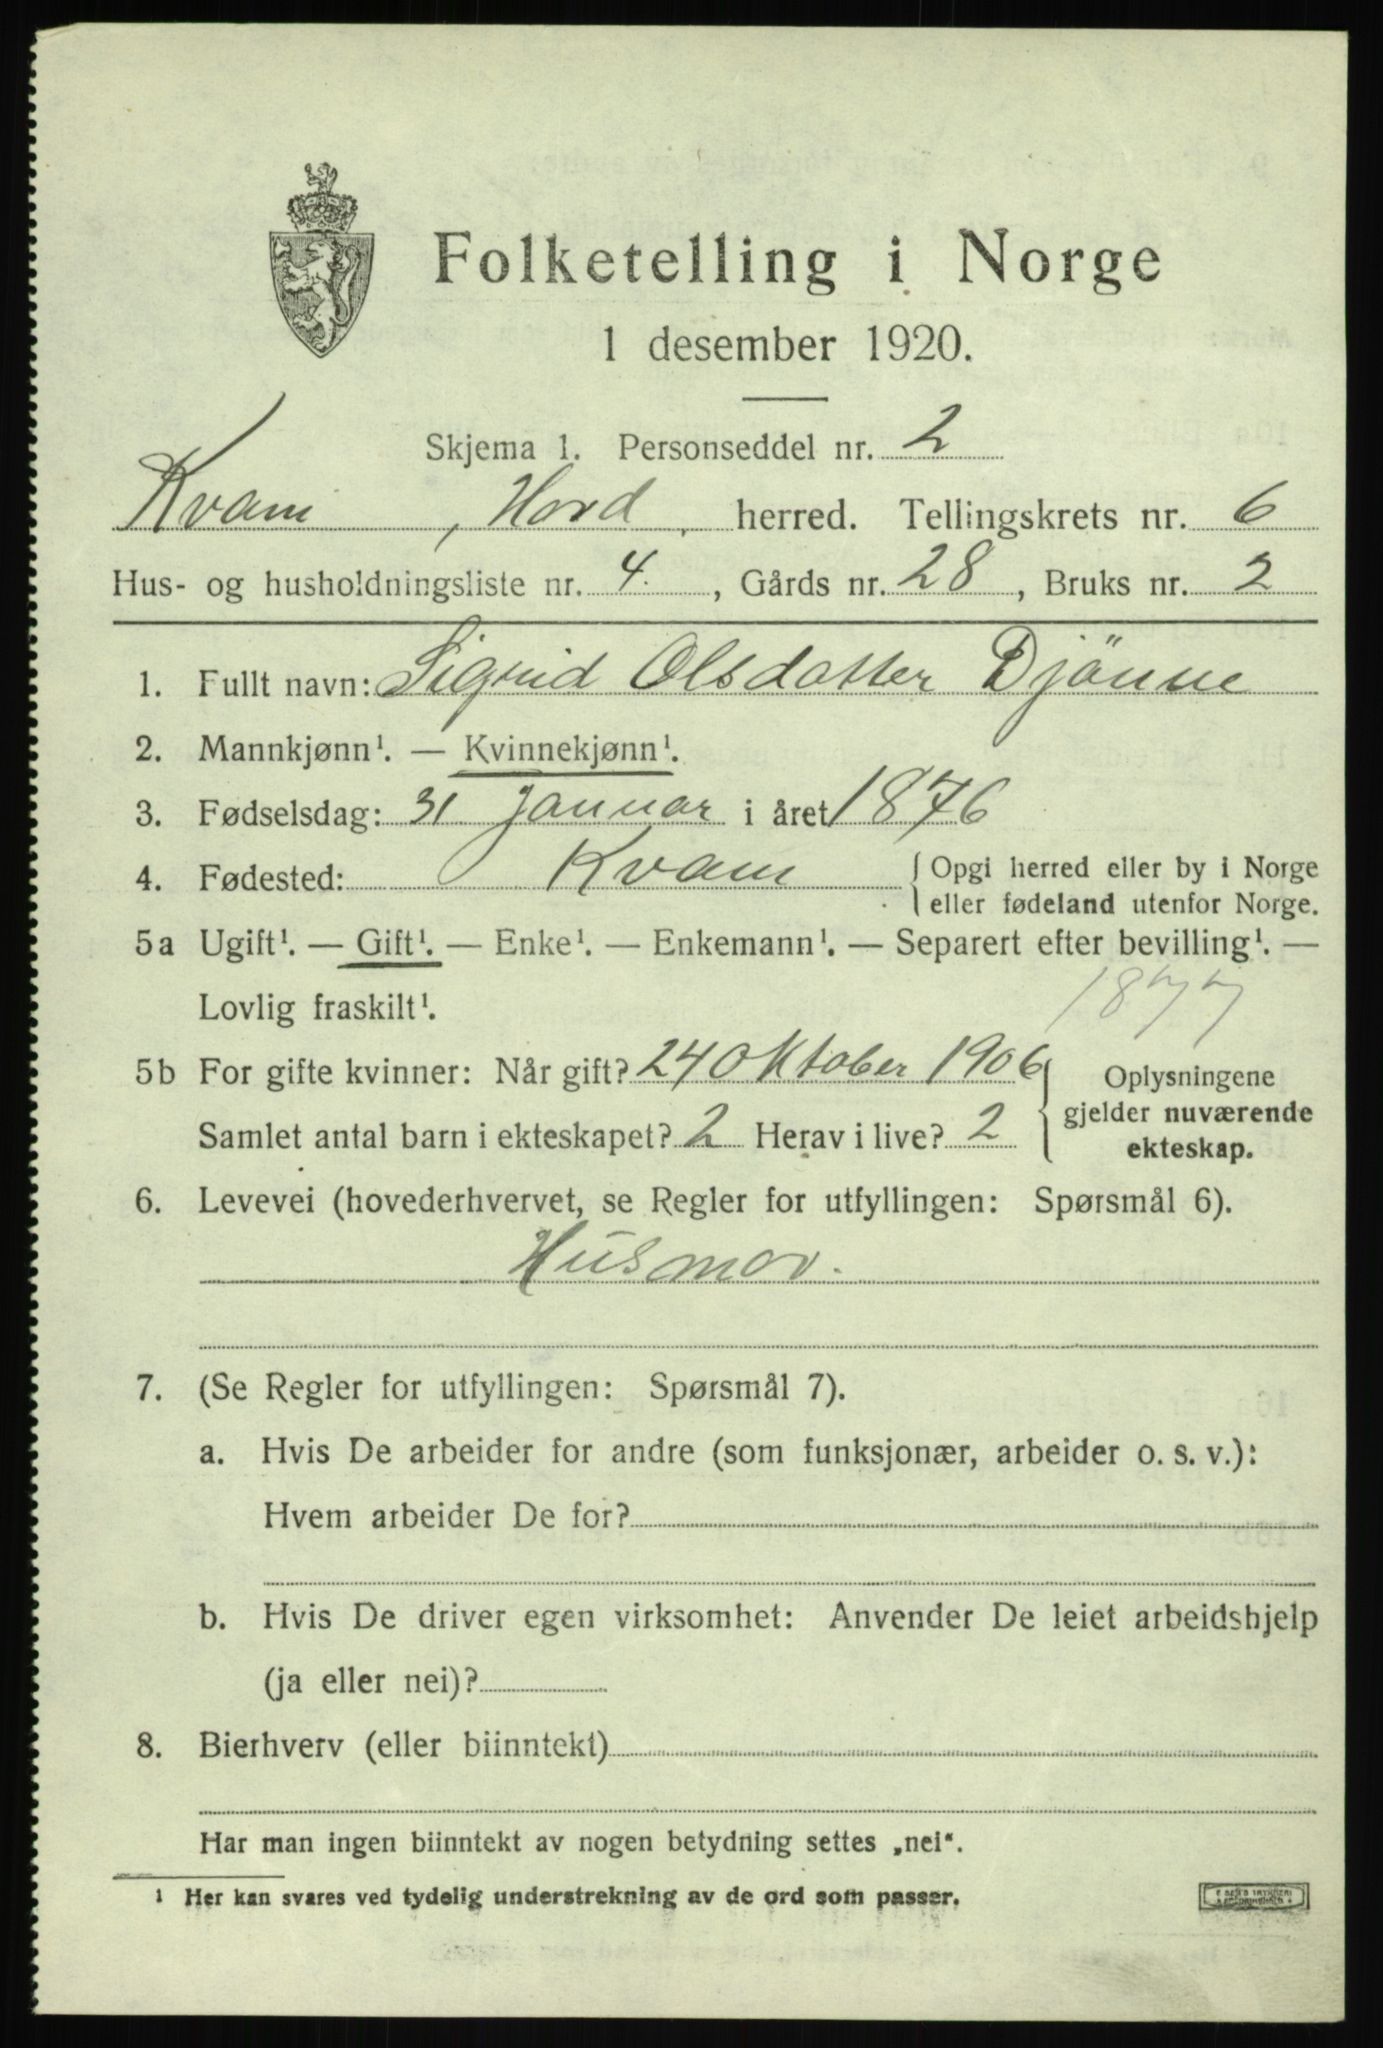 Folketelling i Norge
1 desember 1920.
Skjema 1. Personseddel nr. 2
Kvam, Hord. herred. Tellingskrets nr. 6
Hus- og husholdningsliste nr. 4. , Gårds nr. 28 , Bruks nr. 2
1. Fullt navn: Sigrid Olsdatter Djönne
2. Mannkjønn¹. — Kvinnekjønn¹.
3. Fødselsdag: 31 januar i året 1876
4. Fødested: Kvam { Opgi herred eller by i Norge
eller fødeland utenfor Norge.
5a Ugift¹. — Gift¹. — Enke¹. — Enkemann¹. — Separert efter bevilling¹. —
Lovlig fraskilt¹. 1877
5b For gifte kvinner: Når gift? 24 Oktober 1906 { Oplysningene
gjelder nuværende
Samlet antal barn i ekteskapet? 2 Herav i live? 2
ekteskap.
6. Levevei (hovederhvervet, se Regler for utfyllingen: Spørsmål 6).
Husmor.
7. (Se Regler for utfyllingen: Spørsmål 7).
a. Hvis De arbeider for andre (som funksjonær, arbeider o. s. v.):
Hvem arbeider De for?
b. Hvis De driver egen virksomhet: Anvender De leiet arbeidshjelp
(ja eller nei)?
8. Bierhverv (eller biinntekt)
Har man ingen biinntekt av nogen betydning settes „nei“.
¹ Her kan svares ved tydelig understrekning av de ord som passer.